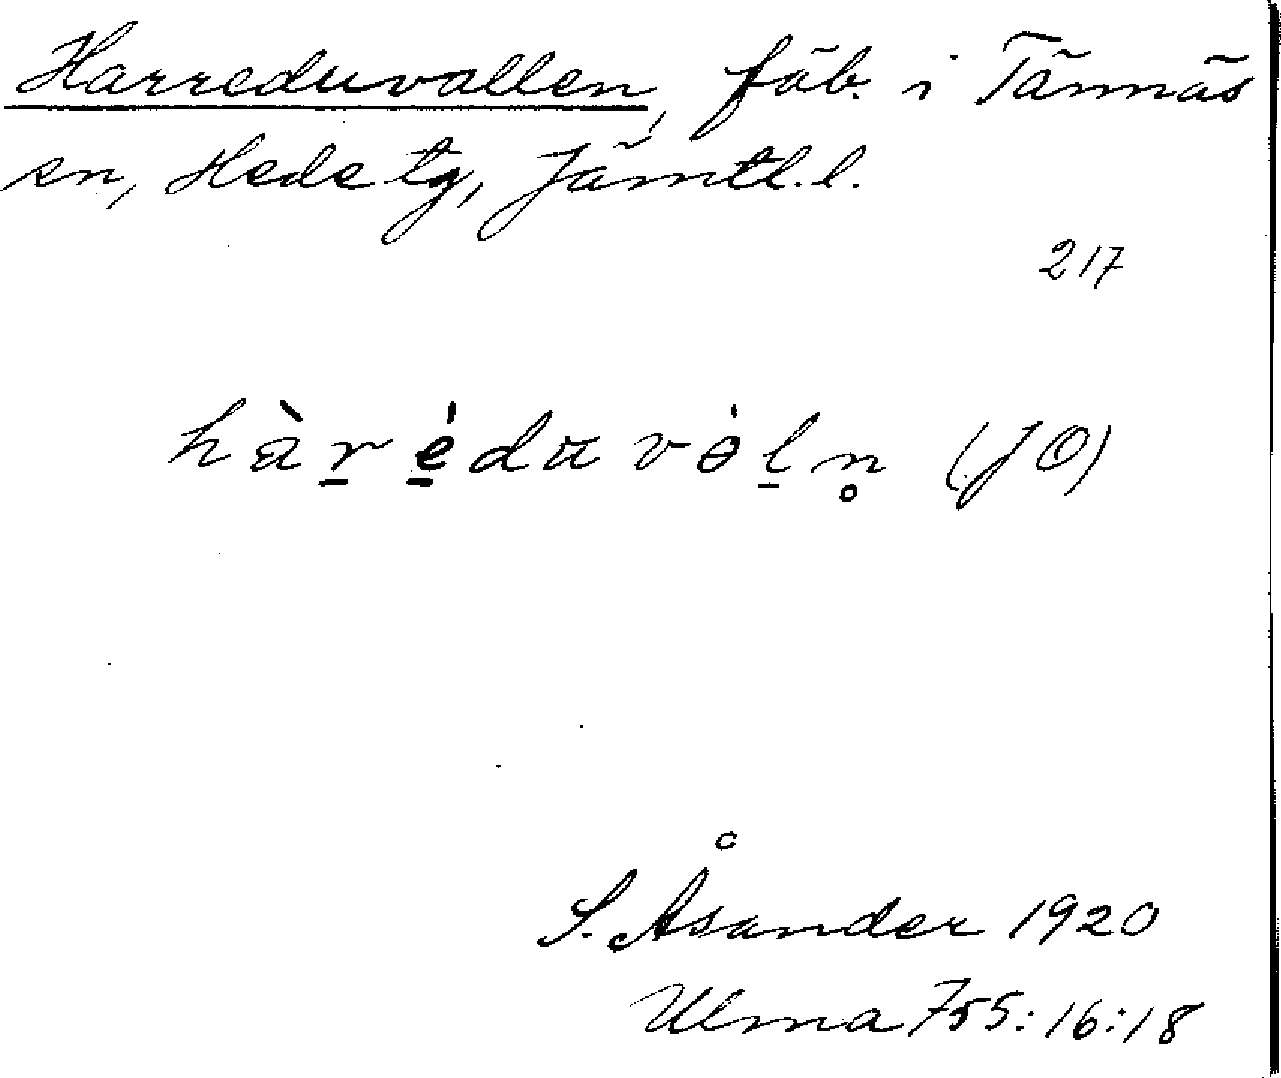 Harreduvallen, fäb. i Tännäs
sn, Hede tg, Jämtl. l.
217
hàr̲é̲dɑvə̇l̲n̥ (JO)
S. Åsander 1920
Ulma 755:16:18